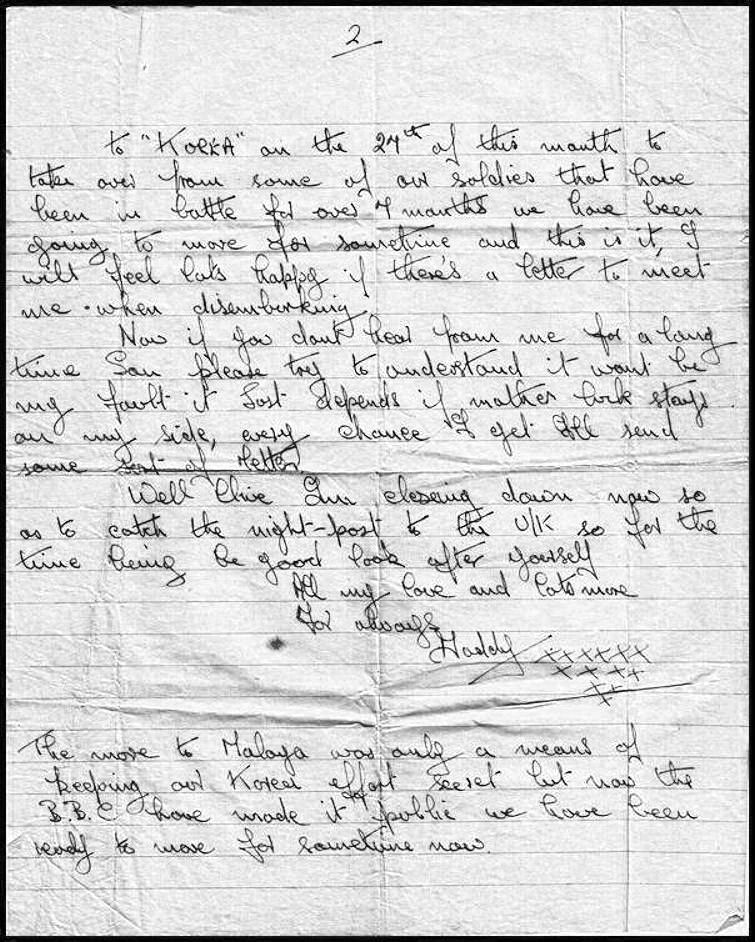 2
to "KOREA" on the 27th of this month to
take over from some of our soldies that have
been in battle for over 7 months we have been
going to move for sometime and this is it, I
will feel lots happy if there's a letter to meet
me when disembarking
Now if you dont hear from me for a long
time please try to understand it wont be
my fault it Just depends if mother luck stays
on my side, every chance I get Ill send
some sort of letter
Well closeing down now so
as to catch the night-post to the U/K so for the
time being be good look after yourself
All my love and lots more
For always
xxxxxx
xxxx
xx
The move to Malaya was only a means of
keeping our Korea effort secret but now the
B.B.C have made it public we have been
ready to move for sometime now.